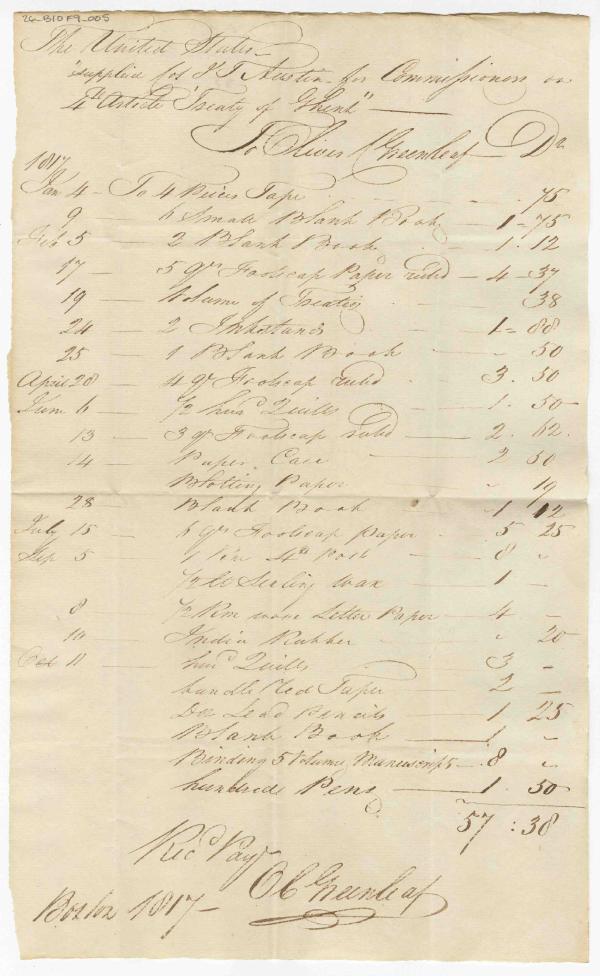 26-B10F9-005
The United States
"supplied for J T Austin for Commissioners on
4th Article Treaty of Ghent"
To Oliver C Greenleaf Dr
1817
Jan 4 - To 4 Pieces Tape 75
9 - 6 Small Blank Book 1 - 75
Feb 5 2 Blank Book 1 . 12
17 - 5 qrs Foolscap Paper ruled 4 - 37
19 - Volume of Treaties 38
24 - 2 Inkstands 1 = 88
25 1 Blank Book " 50
April 28 - 4 qr Foolscap ruld 3 . 50
June 6 - 1/2 hund Quills 1 . 50
13 - 3 qr Foolscap ruld 2 . 62
14 - Paper Case 2 50
Blotting Paper " 19
28 - Blank Book 1 12
July 15 6 qrs Foolscap paper 5 25
Sep 5 1 4to Post 8 "
1/2 Sealing Wax 1 -
8 1/2 Rm wove Letter Paper 4 -
10 India Rubber " 20
Oct 11 hund Quills 3 -
bundle Red Taper 2 -
Doz Lead Pencils 1 25
Blank Book 1 "
Binding 5 Volumes Manuscripts 8 "
hundred Pens 1 . 50
57 : 38
Recd Payt
O C Greenleaf
Boston 1817